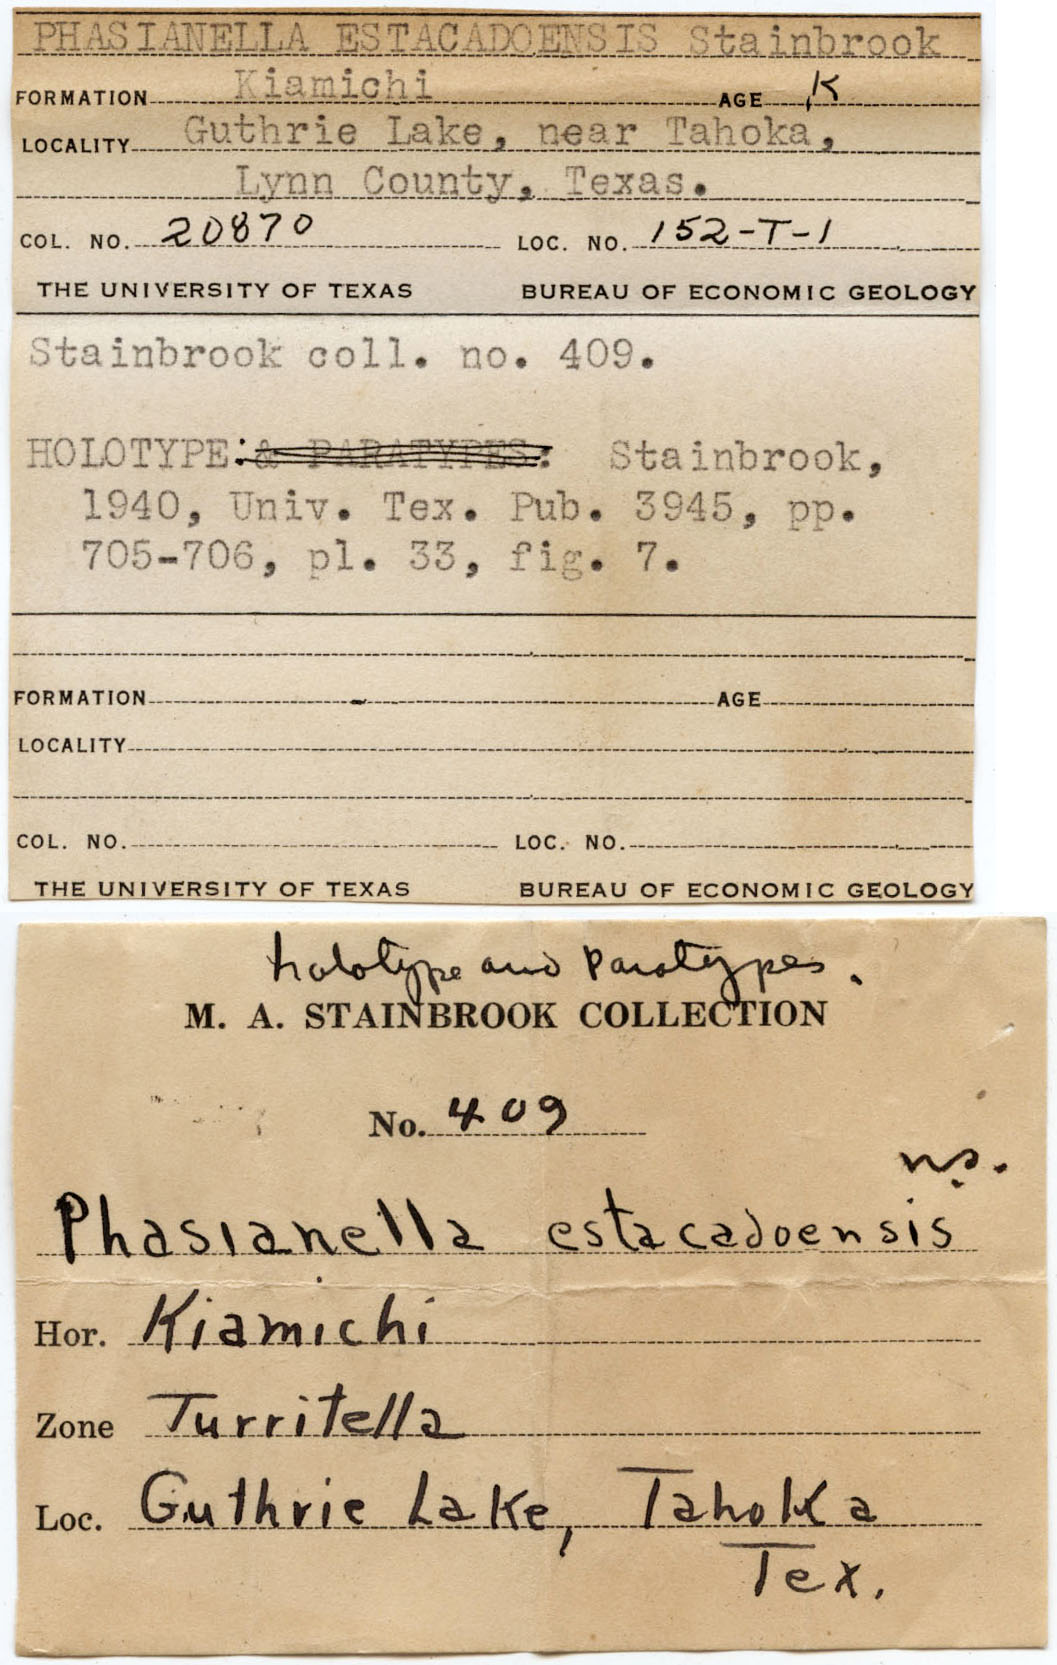 PHASIANELLA ESTACADOENSIS Stainbrook
FORMATION Kiamichi AGE K
LOCALITY Guthrie Lake, near Tahoka,
Lynn County, Texas.
COL. NO. 20870 LOC. NO. 152-T-1
THE UNIVERSITY OF TEXAS BUREAU OF ECONOMIC GEOLOGY
Stainbrook coll. no. 409.
HOLOTYPE: & PARATYPES: Stainbrook,
1940, Univ. Tex. Pub. 3945, pp.
705-706, pl. 33, fig. 7.
FORMATION AGE
LOCALITY
COL. NO. LOC. NO.
THE UNIVERSITY OF TEXAS BUREAU OF ECONOMIC GEOLOGY
holotype and paratypes.
M. A. STAINBROOK COLLECTION
No. 409
ns.
Phasianella estacadoensis
Hor. Kiamichi
Zone Turritella
Loc. Guthrie Lake, Tahoka
Tex.